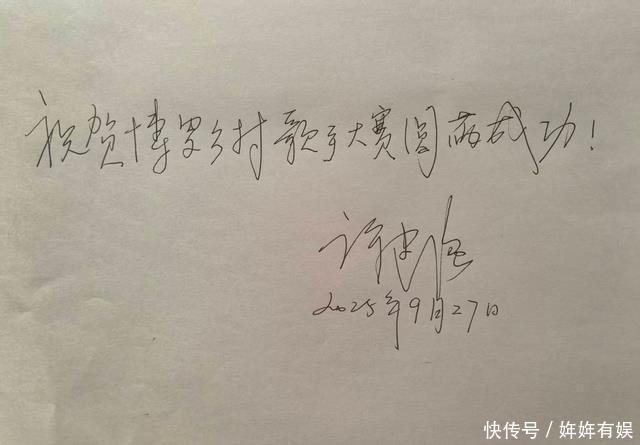 祝贺博罗乡村歌手大赛圆满成功！
许建强
2025年9月27日
快传号／姩姩有娱